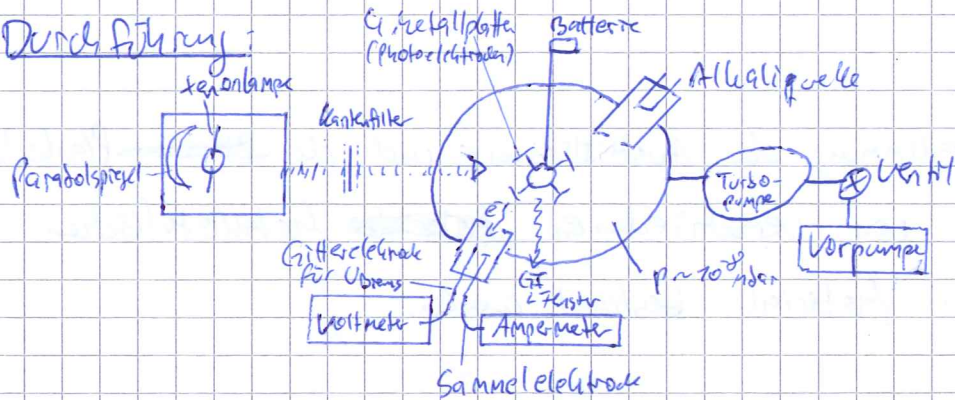 Durchführung:
Xenonlampe
Parabolspiegel
Kantenfilter
Metallplatten
(Photoelektroden)
Batterie
Alkaliquelle
Turbo-
pumpe
Ventil
Vorpumpe
Gitterelektrode
für UBrems
Voltmeter
e-
Fenster
Ampermeter
Sammelelektrode